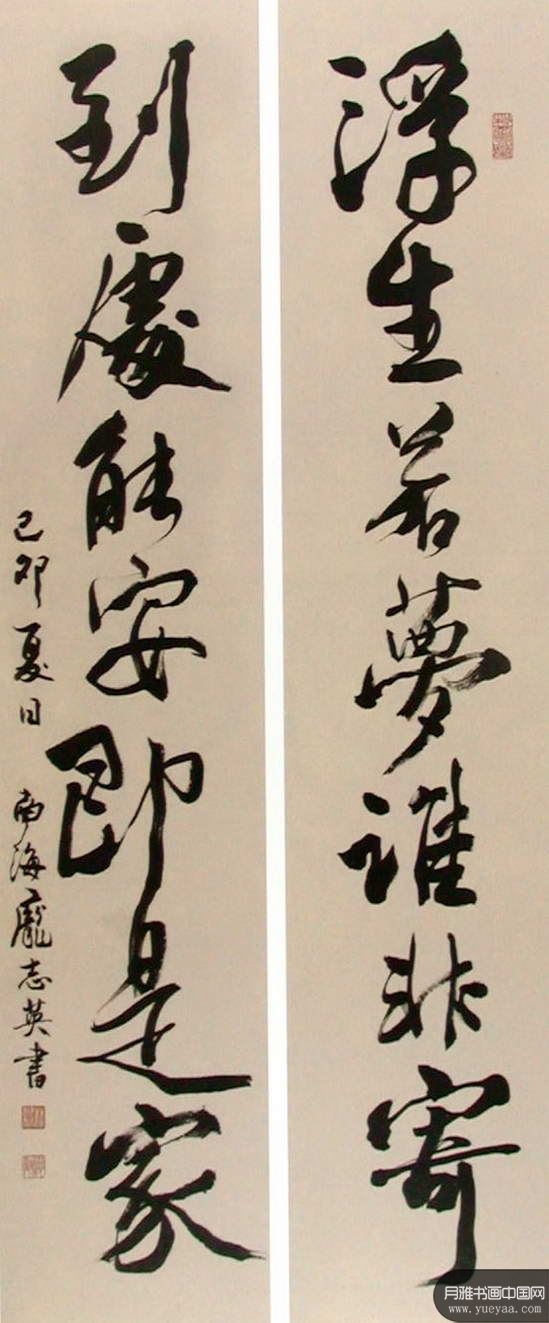 浮生若夢誰非寄
到處能安即是家
己卯夏日 南海龐志英書
月雅书画中国网
www.yueyaa.com